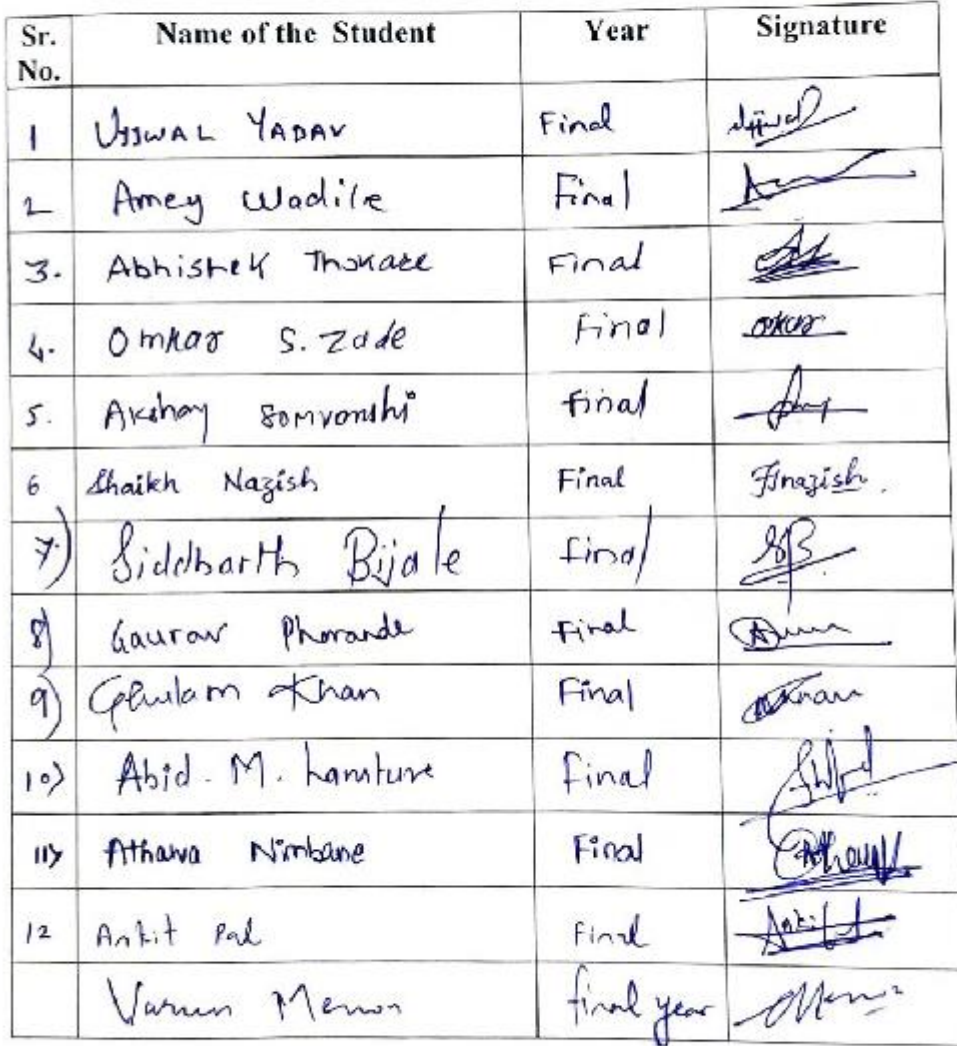 Sr. No. Name of the Student Year Signature
1 UJJWAL YADAV Final Ujjwal
2 Amey Wadile Final
3. Abhishek Thokare Final
4. Omkar S. Zade Final omkar
5. Akshay Somvanshi Final
6 Shaikh Nazish Final Fnazish.
7) Siddharth Bijale Final SB
8) Gaurav Phorande Final
9) Ghulam Khan Final Khan
10) Abid. M. Final
11) Atharva Nimbane Final Atharva
12 Ankit Pal Final Ankit
Varun Menon final year